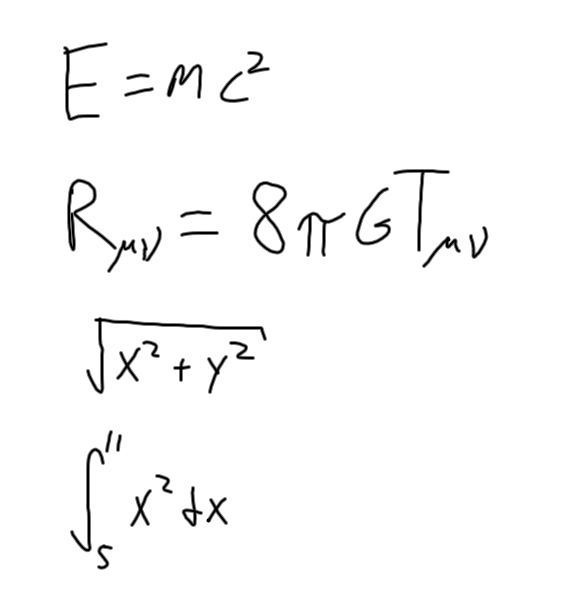 E = mc²
R_μν = 8πGT_μν
√(x² + y²)
∫₅¹¹ x² dx